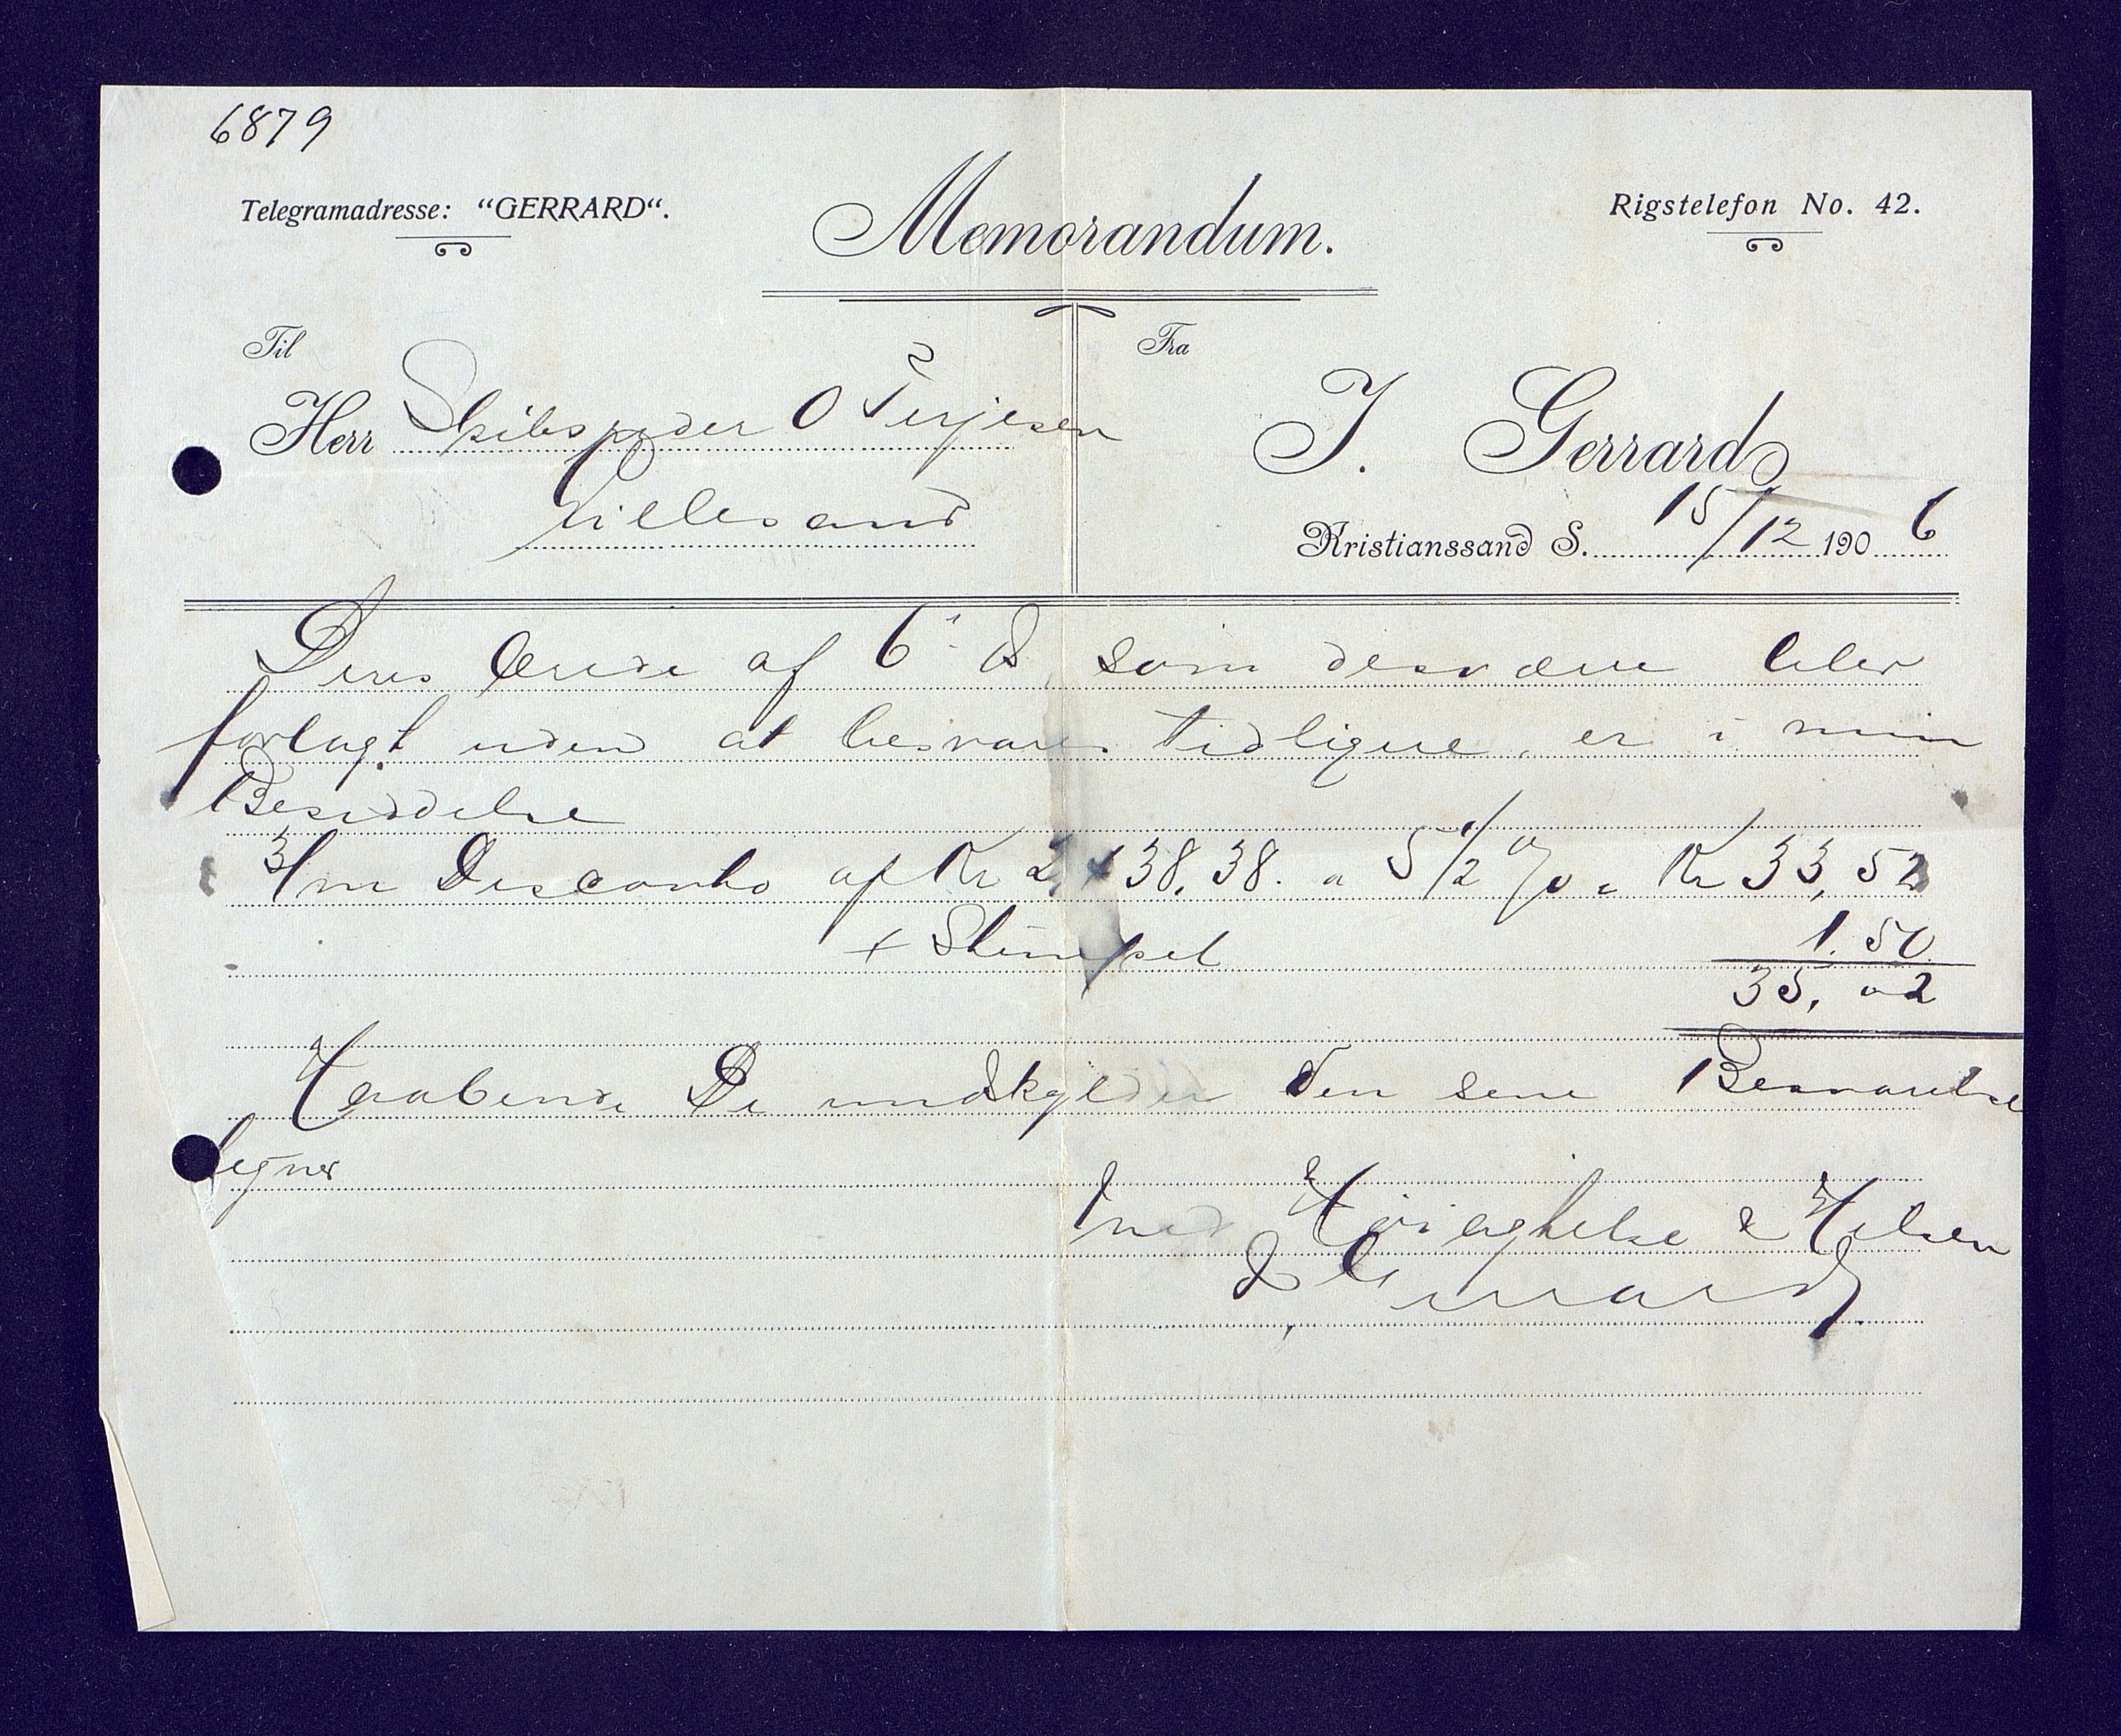 6879
Telegramadresse: "GERRARD".
Memorandum.
Rigstelefon No. 42.
Til
Herr Skibsreder O Terjesen
Lillesand
Fra
J. Gerrard
Kristianssand S. 15/12 1906
Deres ærede af 6' ds som desværre blev
forlagt uden at besvares tidligere, er i min
Besiddelse
3/m Disconto af Kr 2,438.38. a 5 1/2 % = Kr 33,52
+ Stempel 1.50
35,02
Haabende De undskylder den sene Besvarelse
tegner
med Høiagtelse & Hilsen
J Gerrard